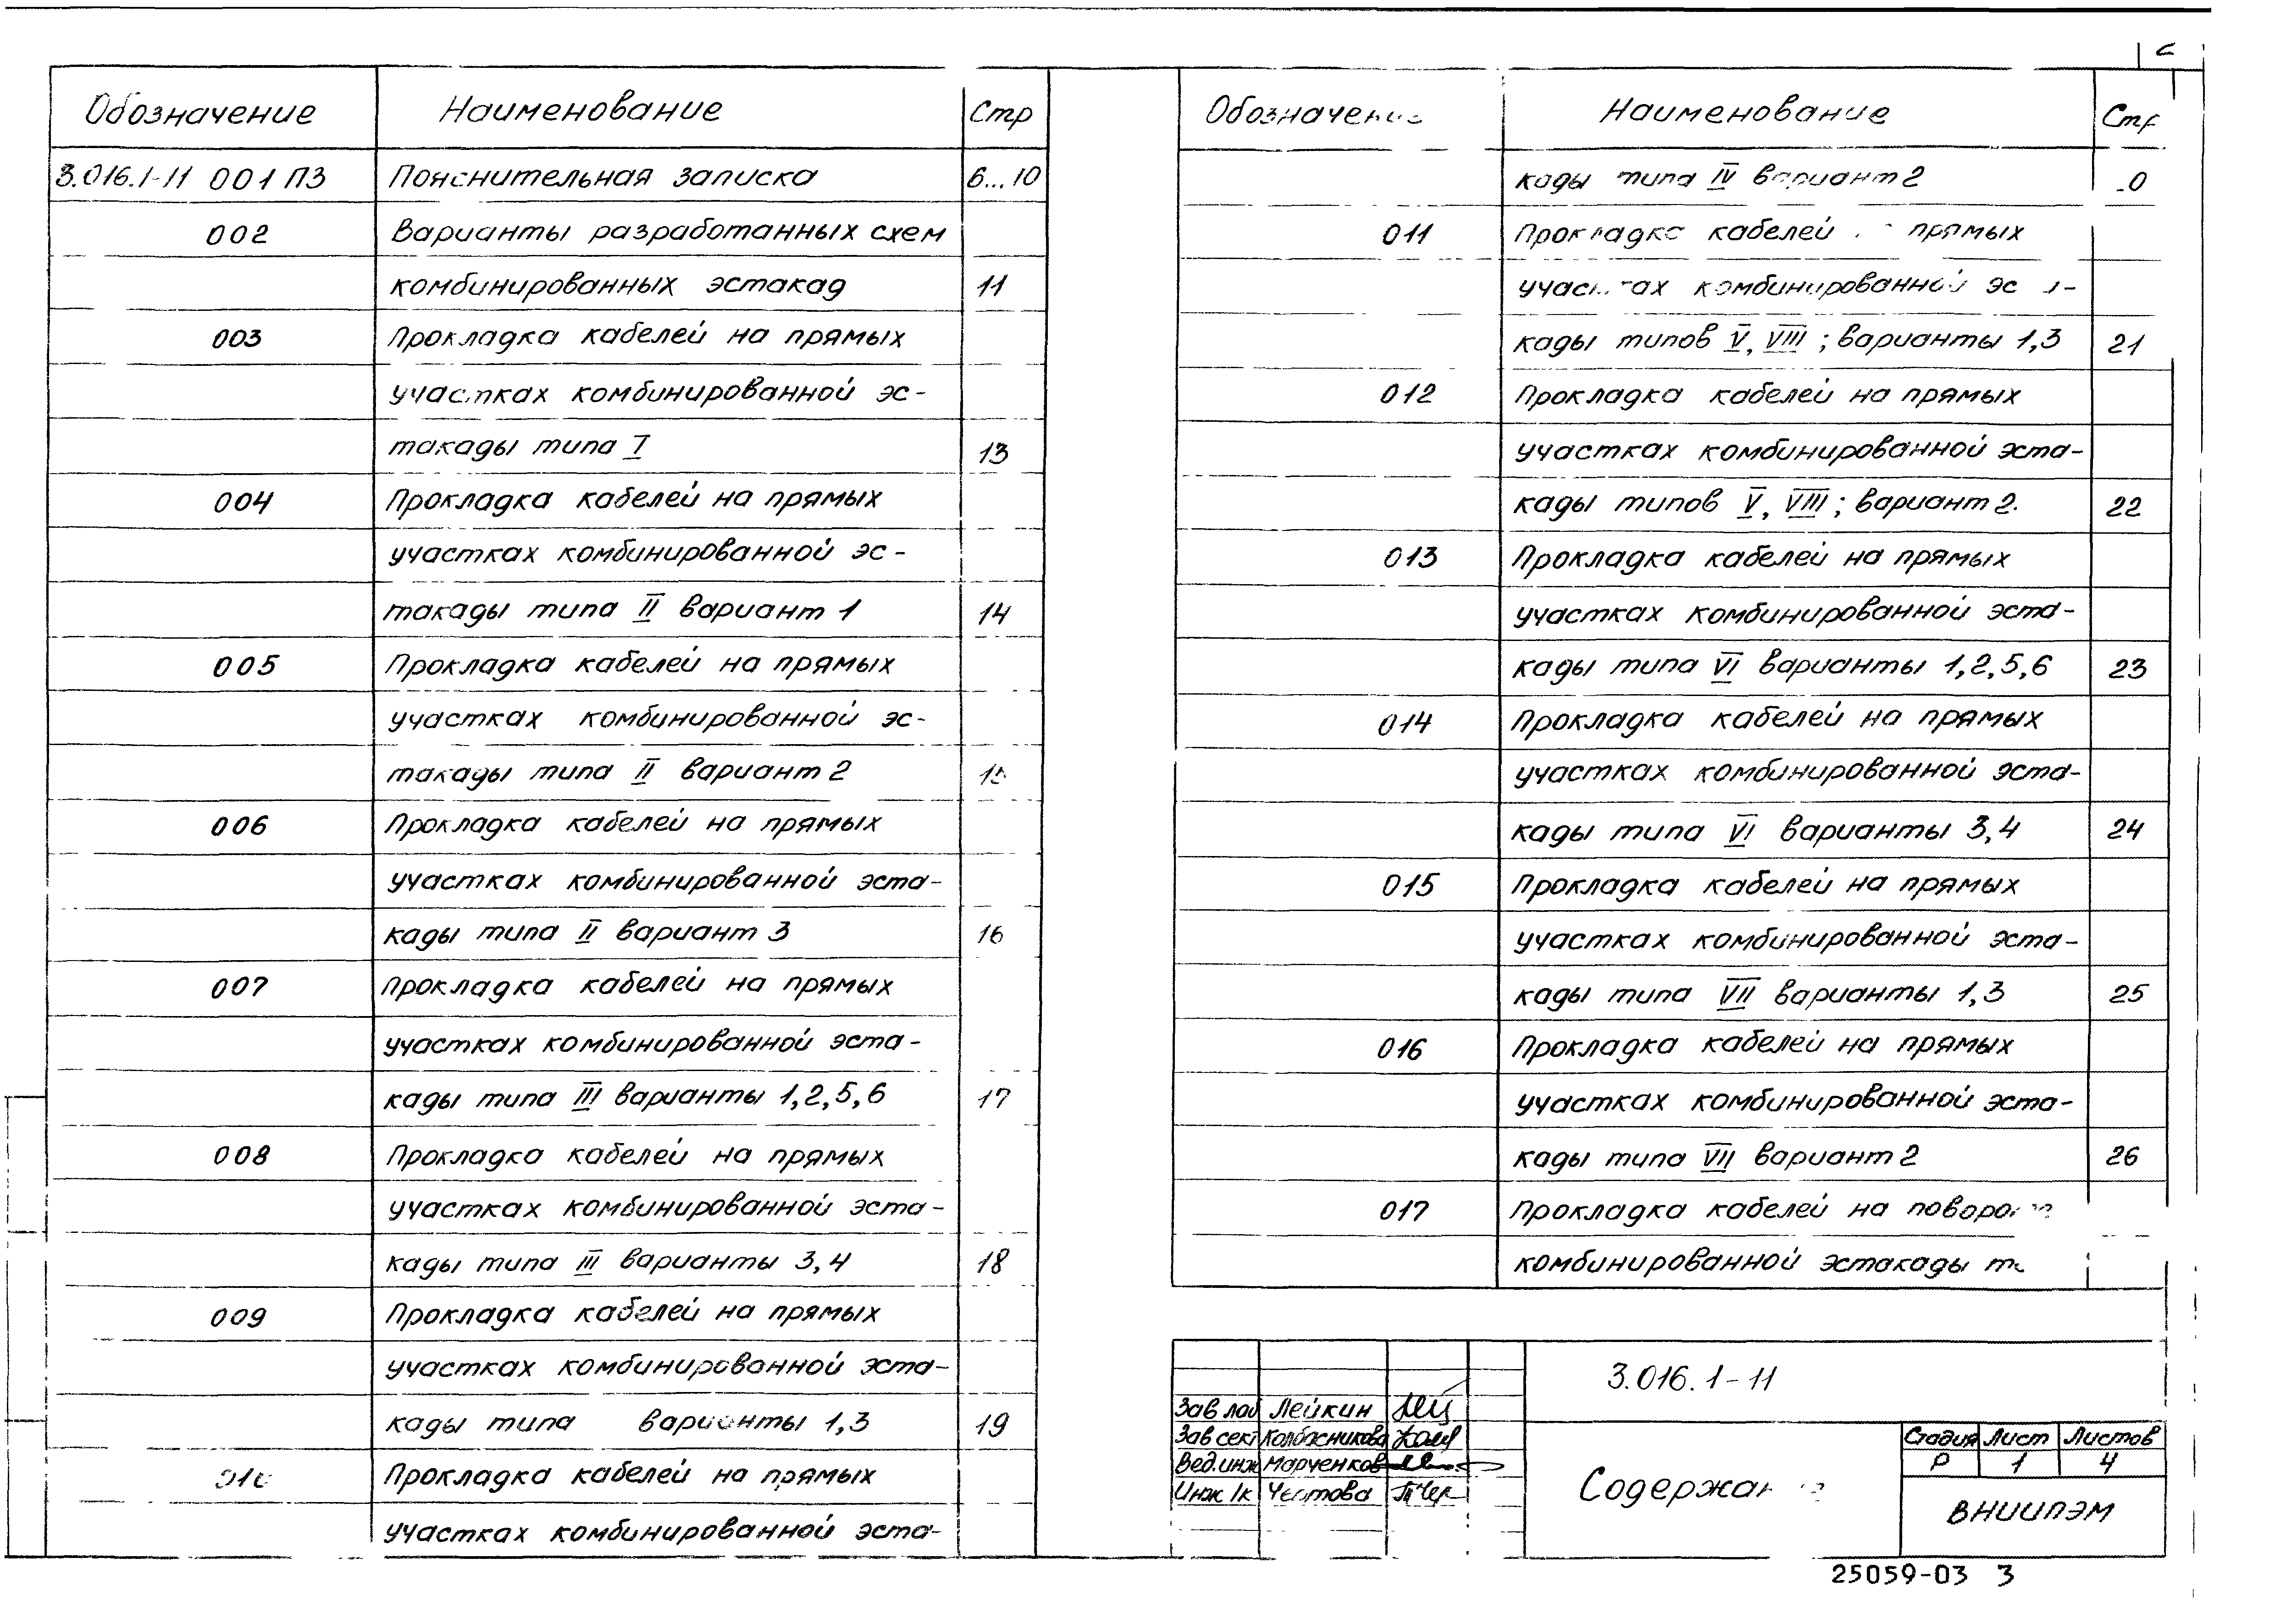 Обозначение Наименование Стр
3.016.1-11 001 ПЗ Пояснительная записка 6...10
002 Варианты разработанных схем
комбинированных эстакад 11
003 Прокладка кабелей на прямых
участках комбинированной эс-
такады типа I 13
004 Прокладка кабелей на прямых
участках комбинированной эс-
такады типа II вариант 1 14
005 Прокладка кабелей на прямых
участках комбинированной эс-
такады типа II вариант 2 15
006 Прокладка кабелей на прямых
участках комбинированной эста-
кады типа II вариант 3 16
007 Прокладка кабелей на прямых
участках комбинированной эста-
кады типа III варианты 1,2,5,6 17
008 Прокладка кабелей на прямых
участках комбинированной эста-
кады типа III варианты 3,4 18
009 Прокладка кабелей на прямых
участках комбинированной эста-
кады типа варианты 1,3 19
010 Прокладка кабелей на прямых
участках комбинированной эста-
Обозначение Наименование Стр
кады типа IV вариант 2
011 Прокладка кабелей прямых
участках комбинированной
кады типов V, VIII; варианты 1,3 21
012 Прокладка кабелей на прямых
участках комбинированной эста-
кады типов V, VIII; вариант 2. 22
013 Прокладка кабелей на прямых
участках комбинированной эста-
кады типа VI варианты 1,2,5,6 23
014 Прокладка кабелей на прямых
участках комбинированной эста-
кады типа VI варианты 3,4 24
015 Прокладка кабелей на прямых
участках комбинированной эста-
кады типа VII варианты 1,3 25
016 Прокладка кабелей на прямых
участках комбинированной эста-
кады типа VII вариант 2 26
017 Прокладка кабелей на
комбинированной эстакады
3.016.1-11
Зав лаб Лейкин
Зав сект Колбасникова
Вед.инж Марченков
Инж Iк Чертова
Содержание
Стадия Лист Листов
Р 1 4
ВНИИПЭМ
25059-03 3